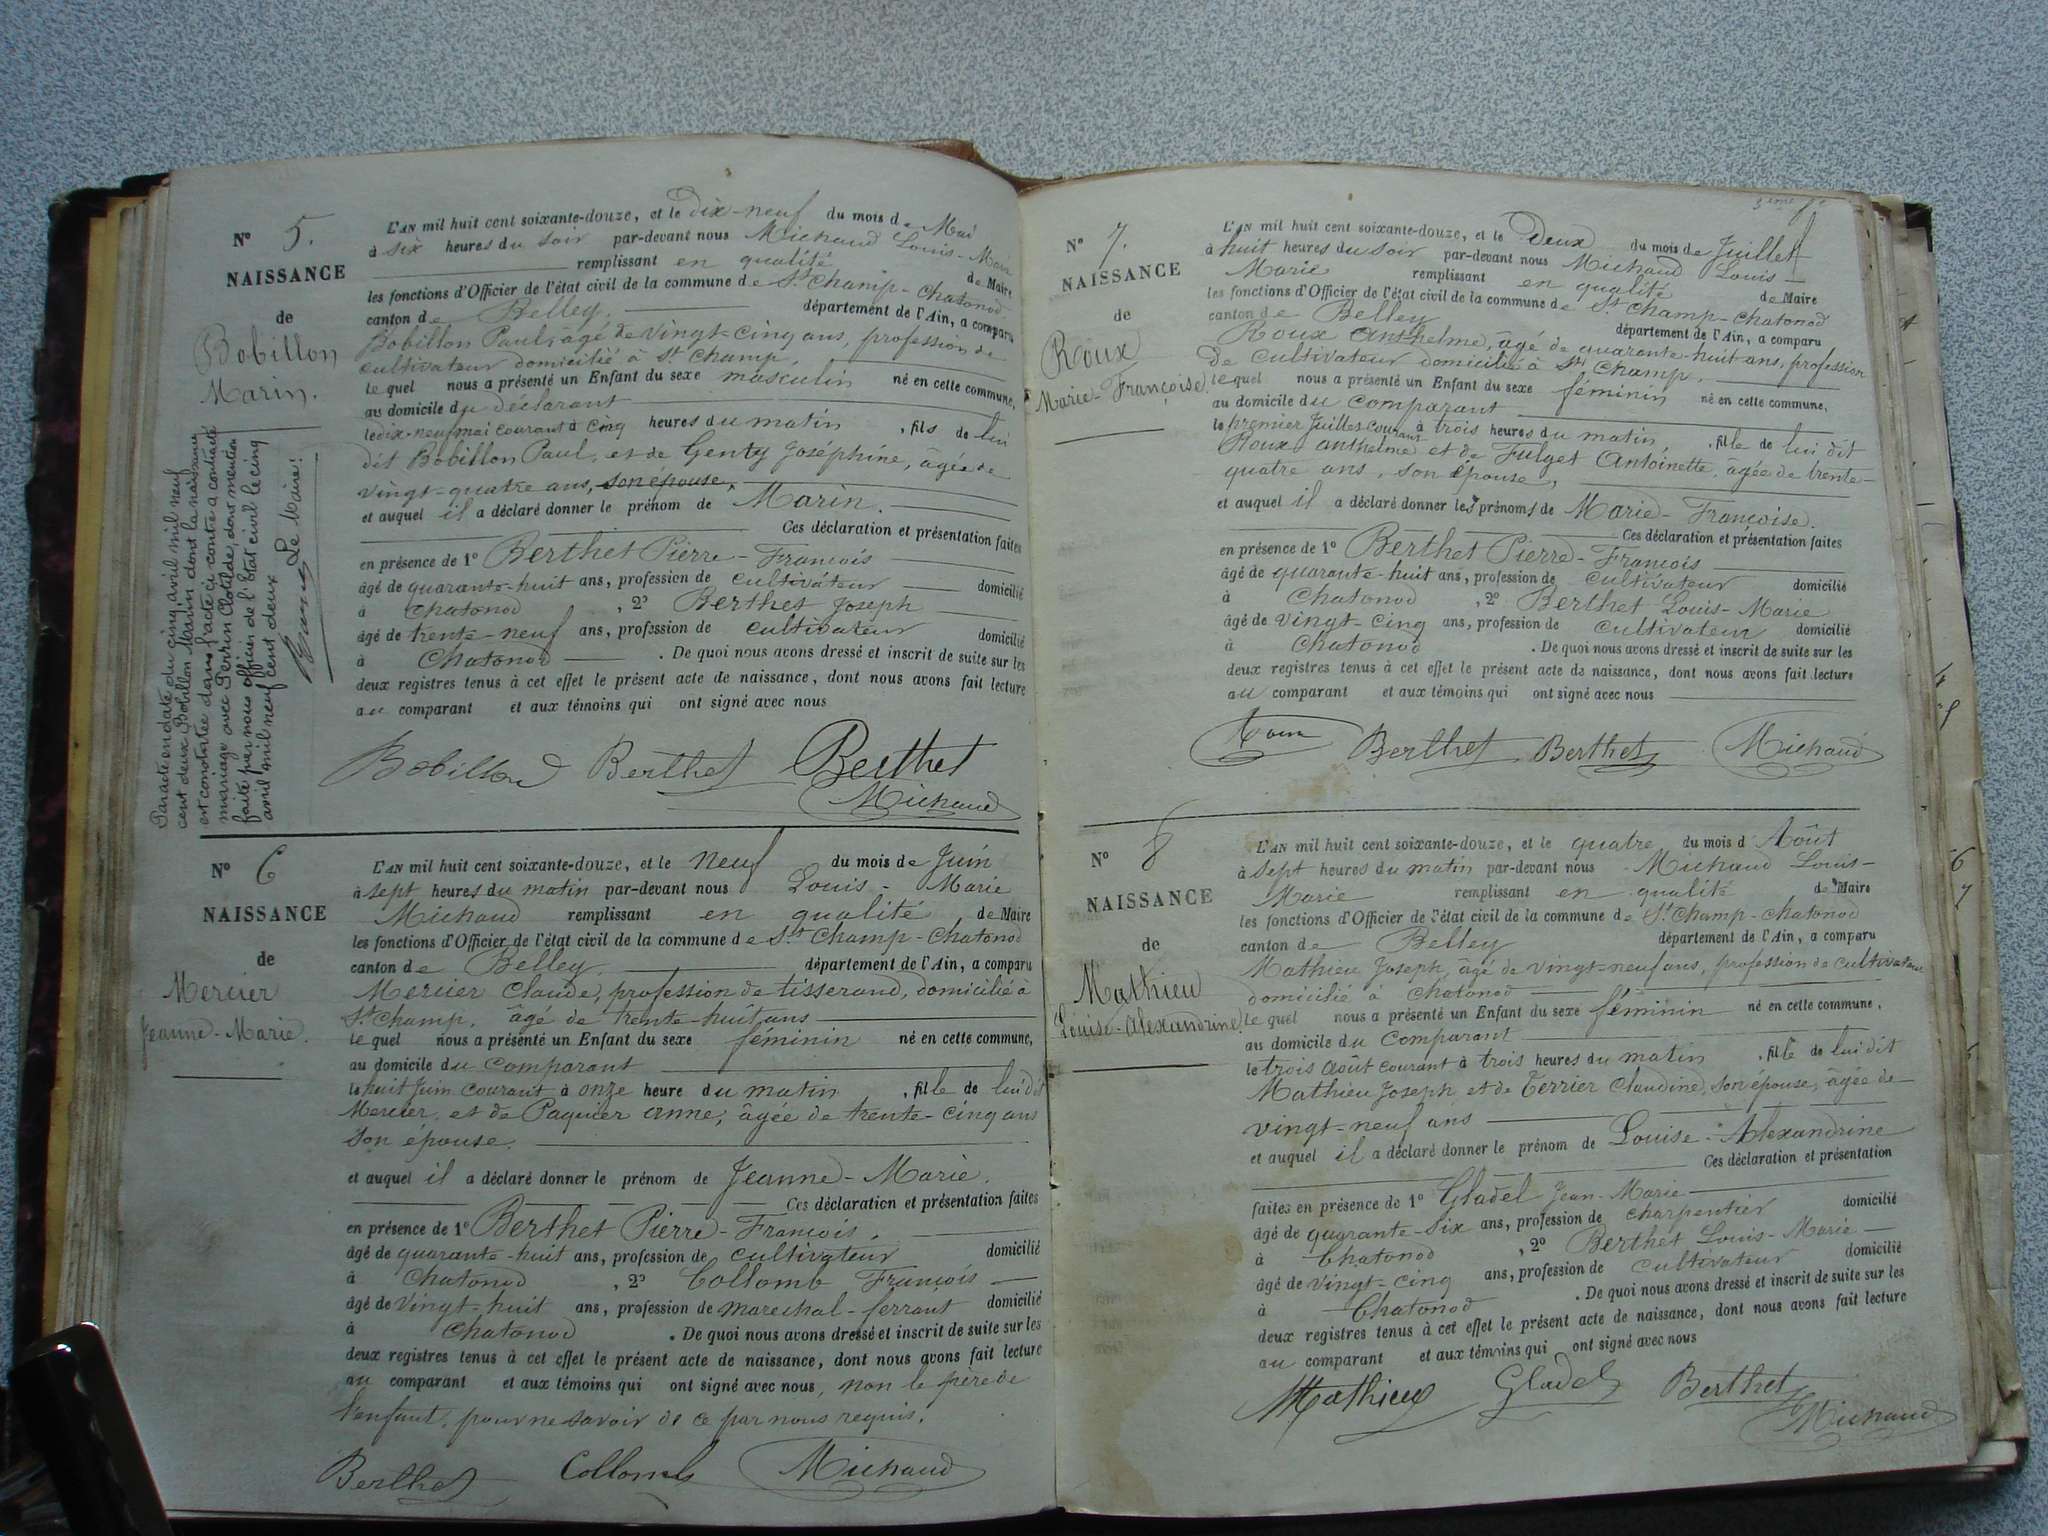 N° 5.
NAISSANCE
de
Bobillon
Marin.
L'AN mil huit cent soixante-douze, et le Dix-neuf du mois de Mai
à six heures du soir par-devant nous Michaud Louis-Marie
remplissant en qualité de Maire
les fonctions d'Officier de l'état civil de la commune de St Champ-Chatonod
canton de Belley. département de l'Ain, a comparu
Bobillon Paul, âgé de vingt-cinq ans, profession de
cultivateur domicilié à St Champ.
le quel nous a présenté un Enfant du sexe masculin né en cette commune,
au domicile du déclarant
le dix-neuf mai courant à cinq heures du matin , fils de lui
dit Bobillon Paul, et de Genty Joséphine, âgée de
vingt-quatre ans, son épouse,
et auquel il a déclaré donner le prénom de Marin.
Ces déclaration et présentation faites
en présence de 1° Berthet Pierre-François
âgé de quarante-huit ans, profession de cultivateur domicilié
à Chatonod , 2° Berthet Joseph
âgé de trente-neuf ans, profession de cultivateur domicilié
à Chatonod . De quoi nous avons dressé et inscrit de suite sur les
deux registres tenus à cet effet le présent acte de naissance, dont nous avons fait lecture
au comparant et aux témoins qui ont signé avec nous
Bobillon Berthet Berthet
Michaud
Par acte en date du cinq avril mil neuf
cent deux Bobillon Marin dont la naissance
est constatée dans l'acte ci-contre a contracté
mariage avec Perrin Clotilde, dont mention
faite par nous officier de l'état civil le cinq
avril mil neuf cent deux Le Maire:
N° 6
NAISSANCE
de
Mercier
Jeanne-Marie.
L'AN mil huit cent soixante-douze, et le neuf du mois de Juin
à sept heures du matin par-devant nous Louis-Marie
Michaud remplissant en qualité de Maire
les fonctions d'Officier de l'état civil de la commune de St Champ-Chatonod
canton de Belley. département de l'Ain, a comparu
Mercier Claude, profession de tisserand, domicilié à
St Champ. âgé de trente-huit ans
le quel nous a présenté un Enfant du sexe féminin né en cette commune,
au domicile du comparant
le huit Juin courant à onze heure du matin , fille de lui dit
Mercier, et de Paquier Anne, âgée de trente-cinq ans
son épouse.
et auquel il a déclaré donner le prénom de Jeanne-Marie.
Ces déclaration et présentation faites
en présence de 1° Berthet Pierre-François.
âgé de quarante-huit ans, profession de cultivateur domicilié
à Chatonod , 2° Collomb François
âgé de vingt-huit ans, profession de marechal-ferrant domicilié
à Chatonod . De quoi nous avons dressé et inscrit de suite sur les
deux registres tenus à cet effet le présent acte de naissance, dont nous avons fait lecture
au comparant et aux témoins qui ont signé avec nous, non le père de
l'enfant, pour ne savoir de ce par nous requis.
Berthet Collomb Michaud
N° 7.
NAISSANCE
de
Roux
Marie-Françoise.
L'AN mil huit cent soixante-douze, et le Deux du mois de Juillet
à huit heures du soir par-devant nous Michaud Louis-
Marie remplissant en qualité de Maire
les fonctions d'Officier de l'état civil de la commune de St Champ-Chatonod
canton de Belley département de l'Ain, a comparu
Roux Anthelme, âgé de quarante-huit ans, profession
de cultivateur domicilié à St Champ.
le quel nous a présenté un Enfant du sexe féminin né en cette commune,
au domicile du comparant
le premier Juillet courant à trois heures du matin , fille de lui dit
Roux Anthelme et de Fulget Antoinette, âgée de trente-
quatre ans, son épouse,
et auquel il a déclaré donner les prénoms de Marie-Françoise.
Ces déclaration et présentation faites
en présence de 1° Berthet Pierre-François
âgé de quarante-huit ans, profession de cultivateur domicilié
à Chatonod , 2° Berthet Louis-Marie
âgé de vingt-cinq ans, profession de cultivateur domicilié
à Chatonod . De quoi nous avons dressé et inscrit de suite sur les
deux registres tenus à cet effet le présent acte de naissance, dont nous avons fait lecture
au comparant et aux témoins qui ont signé avec nous
Roux Berthet Berthet Michaud
N° 8
NAISSANCE
de
Mathieu
Louise-Alexandrine.
L'AN mil huit cent soixante-douze, et le quatre du mois d'Août
à sept heures du matin par-devant nous Michaud Louis-
Marie remplissant en qualité de Maire
les fonctions d'Officier de l'état civil de la commune de St Champ-Chatonod
canton de Belley département de l'Ain, a comparu
Mathieu Joseph, âgé de vingt-neuf ans, profession de cultivateur
domicilié à Chatonod
le quel nous a présenté un Enfant du sexe féminin né en cette commune,
au domicile du comparant
le trois Août courant à trois heures du matin , fille de lui dit
Mathieu Joseph et de Terrier Claudine, son épouse, âgée de
vingt-neuf ans
et auquel il a déclaré donner le prénom de Louise-Alexandrine
Ces déclaration et présentation
faites en présence de 1° Gladel Jean-Marie
âgé de quarante-six ans, profession de charpentier domicilié
à Chatonod , 2° Berthet Louis-Marie
âgé de vingt-cinq ans, profession de cultivateur domicilié
à Chatonod . De quoi nous avons dressé et inscrit de suite sur les
deux registres tenus à cet effet le présent acte de naissance, dont nous avons fait lecture
au comparant et aux témoins qui ont signé avec nous
Mathieu Gladel Berthet
Michaud